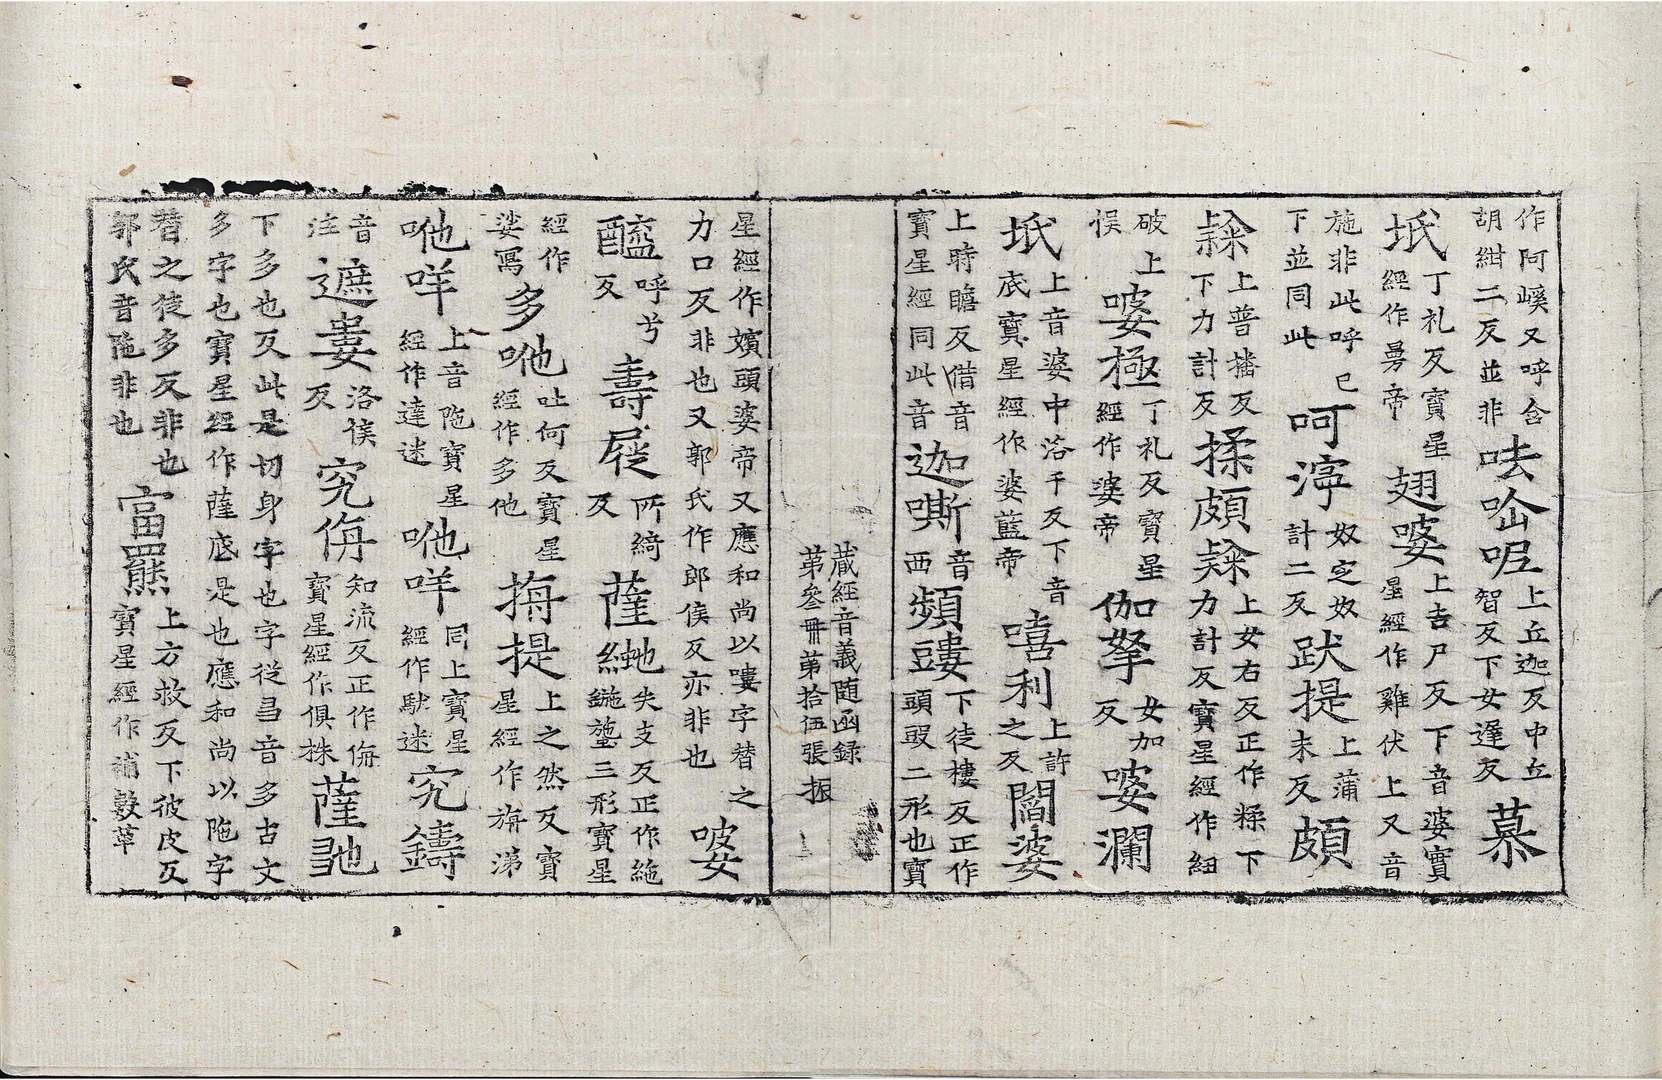 作阿㠋又呼含胡紺二反並非呿唥呢上丘迦反中丘智反下女遅反慕
坻丁礼反寶星經作曼帝翅婆上吉尸反下音婆寶星經作雞伏上又音
施非此呼下並同此已呵奴定奴計二反跃提上蒲末反頗
上普反下力計反揉頗上女右反正作糅下力計反寶星經作紐
破上悮婆極丁礼反寶星經作婆帝伽拏女加反婆瀾
坻上音婆中洛千反下音底寶星經作婆藍帝嘻利上許之反閻婆
上時瞻反借音寶星經同此音迦嘶音西頻下徒樓反正作頭二形也寶
藏經音義随函録
第叄冊第拾伍張 振
星經作嬪頭婆帝又應和尚以嘍字替之力口反非也又郭氏作郎侯反亦非也婆
醯呼兮反壽屣所綺反薩失支反正作絁三形寶星
經作娑寫多咃吐何反寶星經作多他栴提上之然反寶星經作旃涕
咃咩上音陁寶星經作達迷咃咩同上寶星經作馱迷究鑄
音注遮婁洛侯反究侜知流反正作侜寶星經作俱株薩
下多也反此是切身字也字從音多古文多字也寶星經作薩底是也應和尚以陁字
替之徒多反非也郭氏音陁非也富羆上方救反下彼皮反寶星經作補敷草